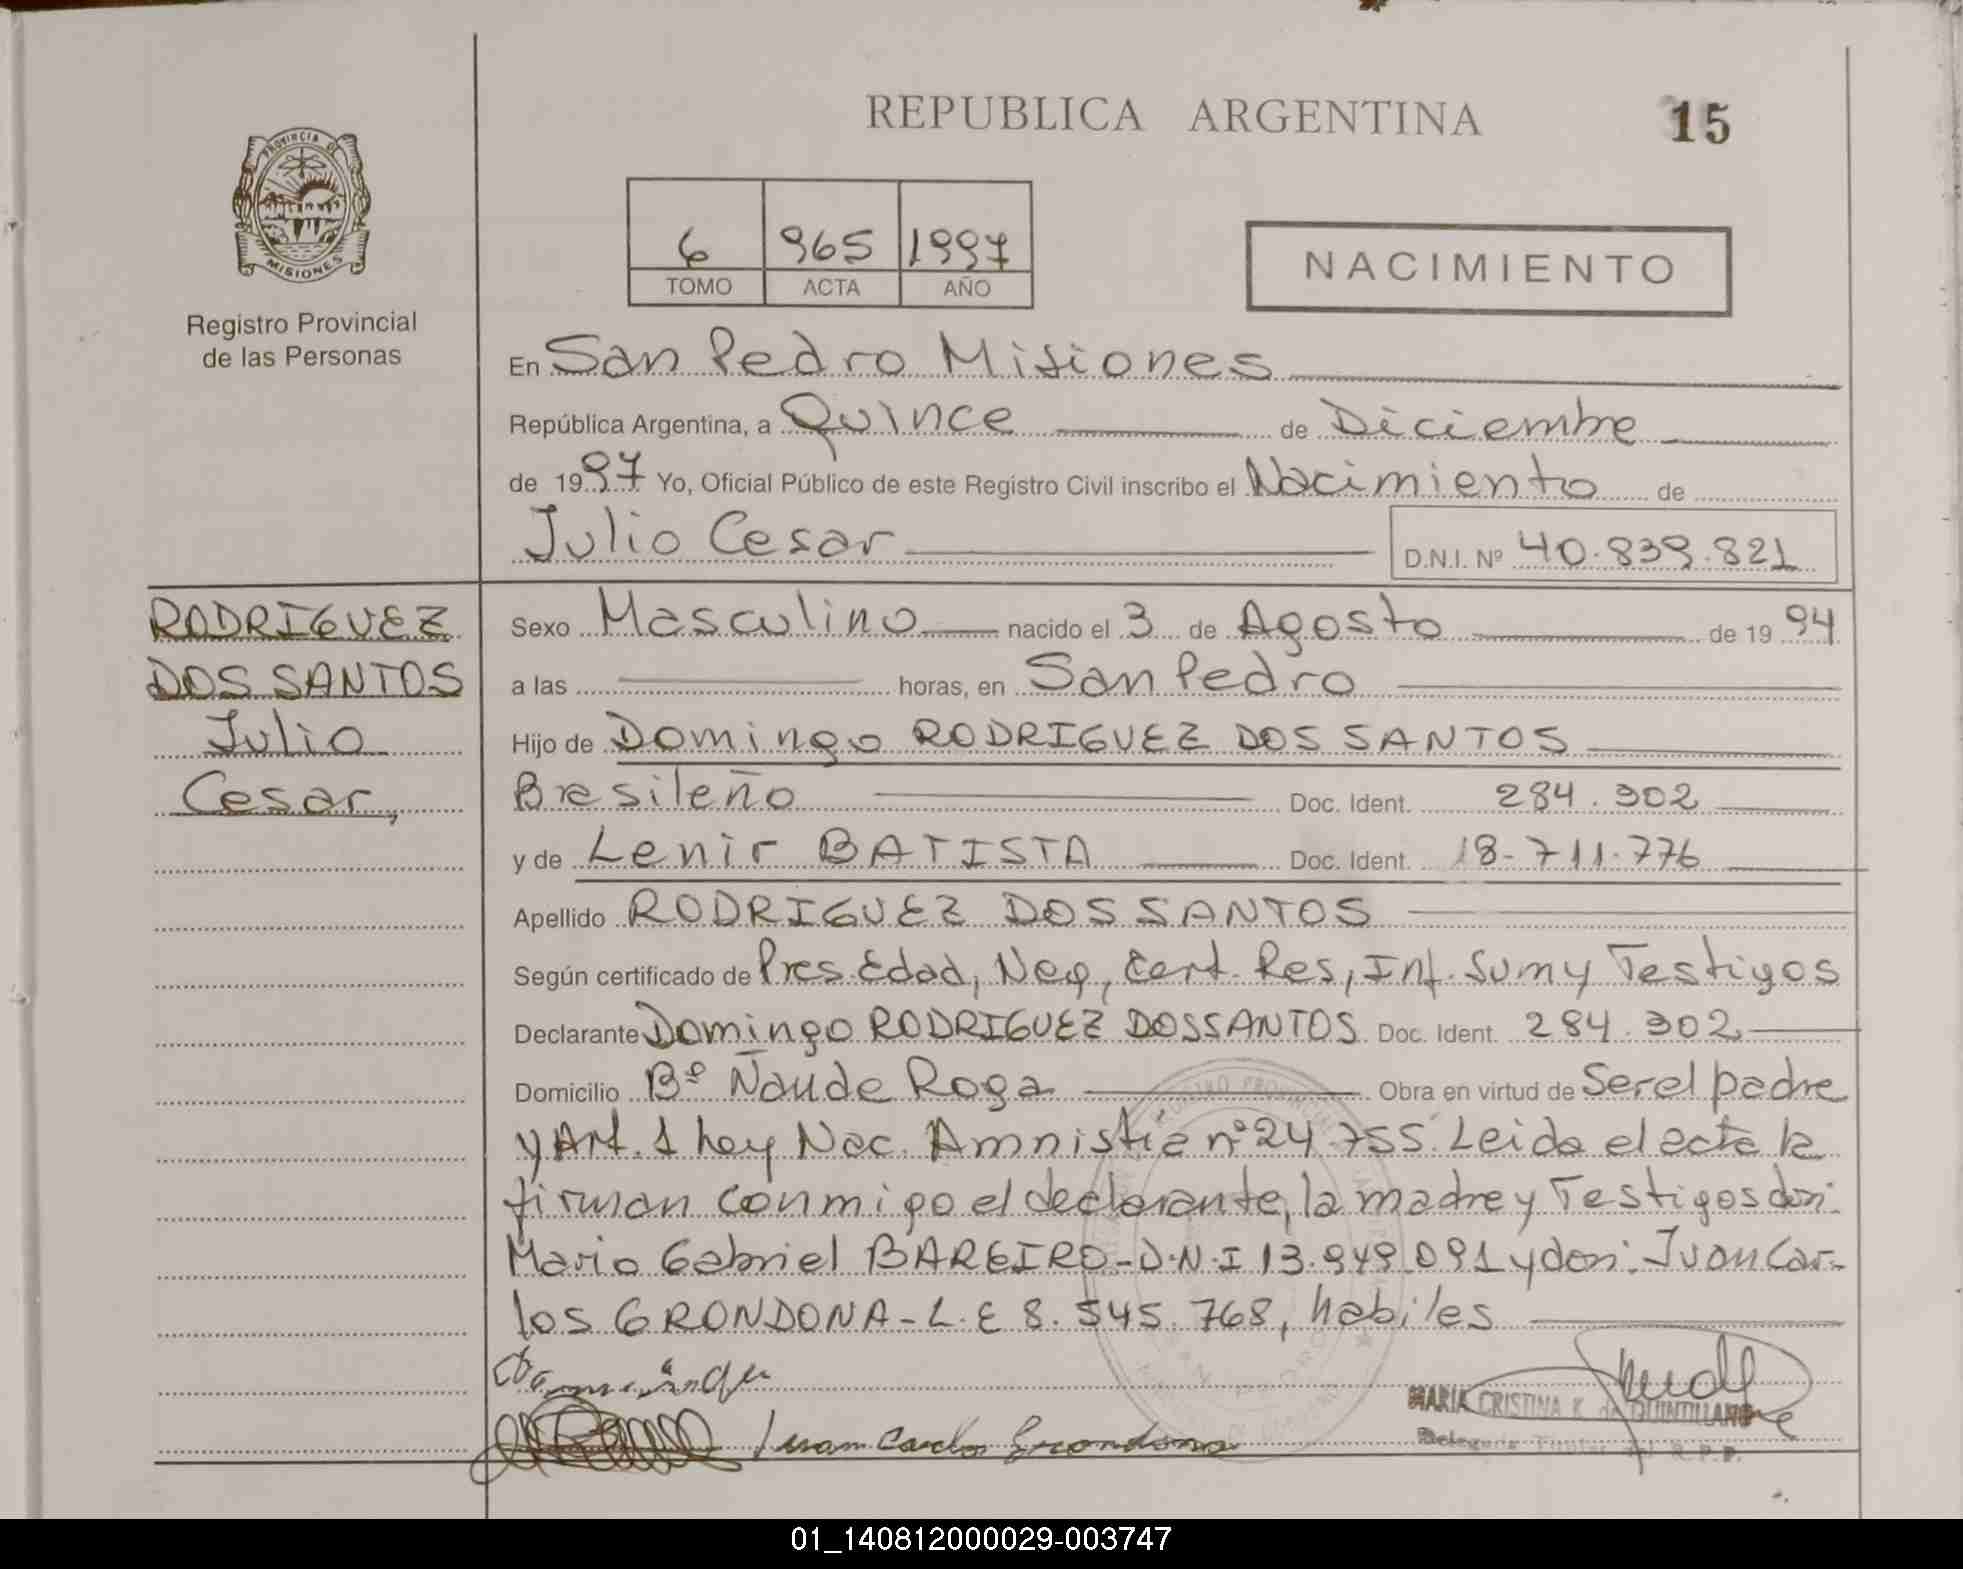 REPUBLICA ARGENTINA
15
PROVINCIA DE
MISIONES
Registro Provincial
de las Personas
6 965 1997
TOMO ACTA AÑO
NACIMIENTO
En San Pedro Misiones
República Argentina, a Quince de Diciembre
de 1997 Yo, Oficial Público de este Registro Civil inscribo el Nacimiento de
Julio Cesar D.N.I. Nº 40.839.821
RODRIGUEZ
DOS SANTOS
Julio
Cesar,
Sexo Masculino nacido el 3 de Agosto de 1994
a las horas, en San Pedro
Hijo de Domingo RODRIGUEZ DOS SANTOS
Brasileño Doc. Ident. 284.302
y de Lenir BATISTA Doc. Ident. 18-711.776
Apellido RODRIGUEZ DOS SANTOS
Según certificado de Pres. Edad, Neg, Cert. Res, Inf. Sum y Testigos
Declarante Domingo RODRIGUEZ DOS SANTOS Doc. Ident. 284.302
Domicilio Bº Ñande Roga Obra en virtud de Ser el padre
y Art. 1 Ley Nac. Amnistia nº 24.755. Leida el acta la
firman conmigo el declarante, la madre y Testigos don:
Mario Gabriel BAREIRO-D.N.I 13.949.091 y don: Juan Car-
los GRONDONA-L.E 8.545.768, habiles
Juan Carlos Grondona
MARIA CRISTINA K. de QUINTILLAN
Delegada Titular del R.P.P.
01_140812000029-003747